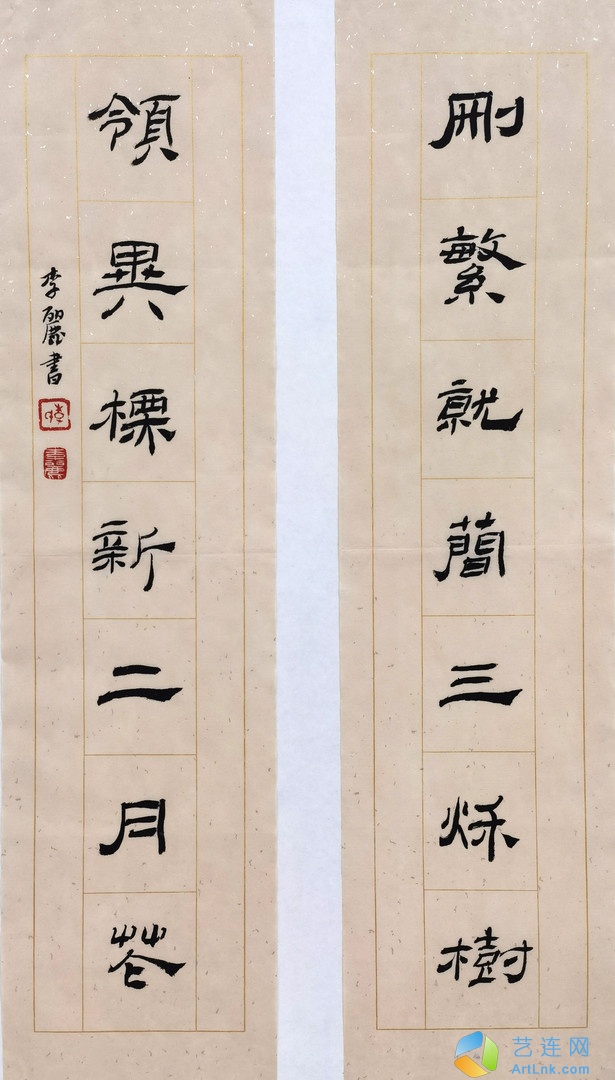 刪繁就簡三秌樹
領異標新二月花
李麗書
艺连网
ArtLnk.com